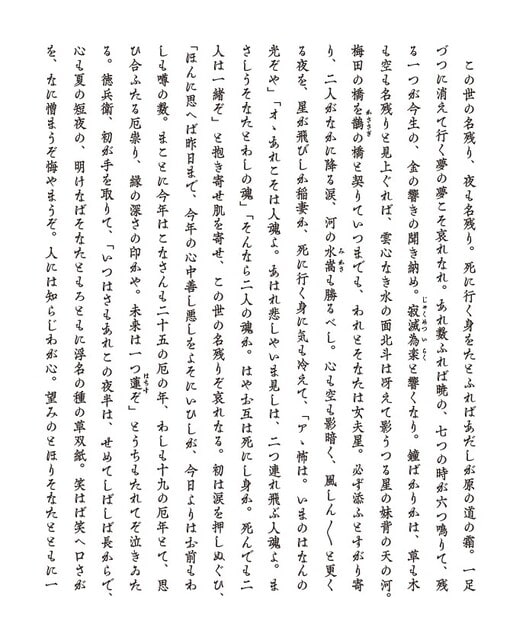 この世の名残り、夜も名残り。死に行く身をたとふればあだしが原の道の霜。一足
づつに消えて行く夢の夢こそ哀れなれ。あれ数ふれば暁の、七つの時が六つ鳴りて、残
る一つが今生の、金の響きの聞き納め。寂滅為楽と響くなり。鐘ばかりかは、草も木
も空も名残りと見上ぐれば、雲心なき水の面北斗は冴えて影うつる星の妹背の天の河。
梅田の橋を鵲の橋と契りていつまでも、われとそなたは女夫星。必ず添ふとすがり寄
り、二人がなかに降る涙、河の水嵩も勝るべし。心も空も影暗く、風しん〳〵と更く
る夜を、星が飛びしか稲妻か、死に行く身に気も冷えて、「アヽ怖は。いまのはなんの
光ぞや」「オヽあれこそは人魂よ。あはれ悲しやいま見しは、二つ連れ飛ぶ人魂よ。ま
さしうそなたとわしの魂」「そんなら二人の魂か。はやお互は死にし身か。死んでも二
人は一緒ぞ」と抱き寄せ肌を寄せ、この世の名残りぞ哀れなる。初は涙を押しぬぐひ、
「ほんに思へば昨日まで、今年の心中善し悪しをよそにいひしが、今日よりはお前もわ
しも噂の数。まことに今年はこなさんも二十五の厄の年、わしも十九の厄年とて、思
ひ合ふたる厄祟り、縁の深さの印かや。未来は一つ蓮ぞ」とうちもたれてぞ泣きゐた
る。徳兵衛、初が手を取りて、「いつはさもあれこの夜半は、せめてしばしは長からで、
心も夏の短夜の、明けなばそなたともろともに浮名の種の草双紙。笑はば笑へ口さが
を、なに憎まうぞ悔やまうぞ。人には知らじわが心。望みのとほりそなたとともに一